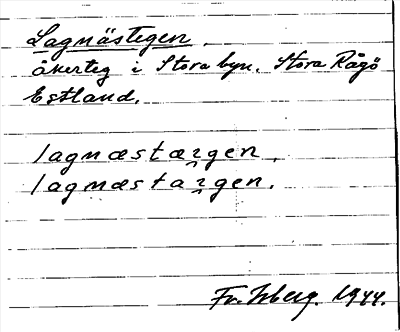 Lagnästegen.
åkerteg i Stora byn. Stora Rågö
Estland.
lagnæstæꝛ̯gen,
lagnæstaꝛ̯gen.
Fr. Isberg. 1944.